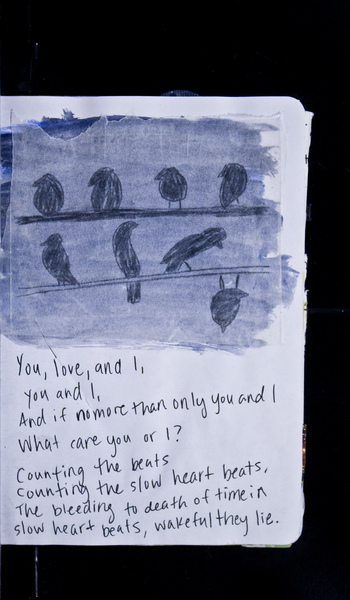 You, love, and I,
you and I,
And if nomore than only you and I
What care you or I?
Counting the beats
counting the slow heart beats,
The bleeding to death of time in
slow heart beats, wakeful they lie.